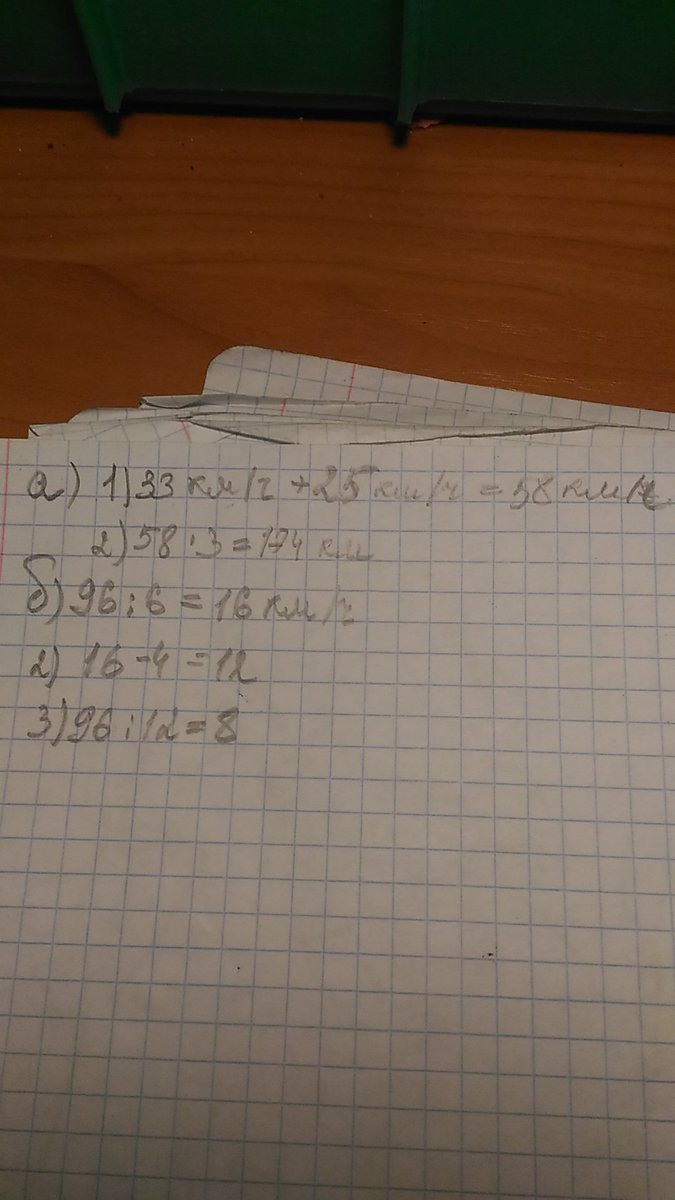 а) 1) 33 км/ч + 25 км/ч = 58 км/ч
2) 58 · 3 = 174 км
б) 96 : 6 = 16 км/ч
2) 16 - 4 = 12
3) 96 : 12 = 8